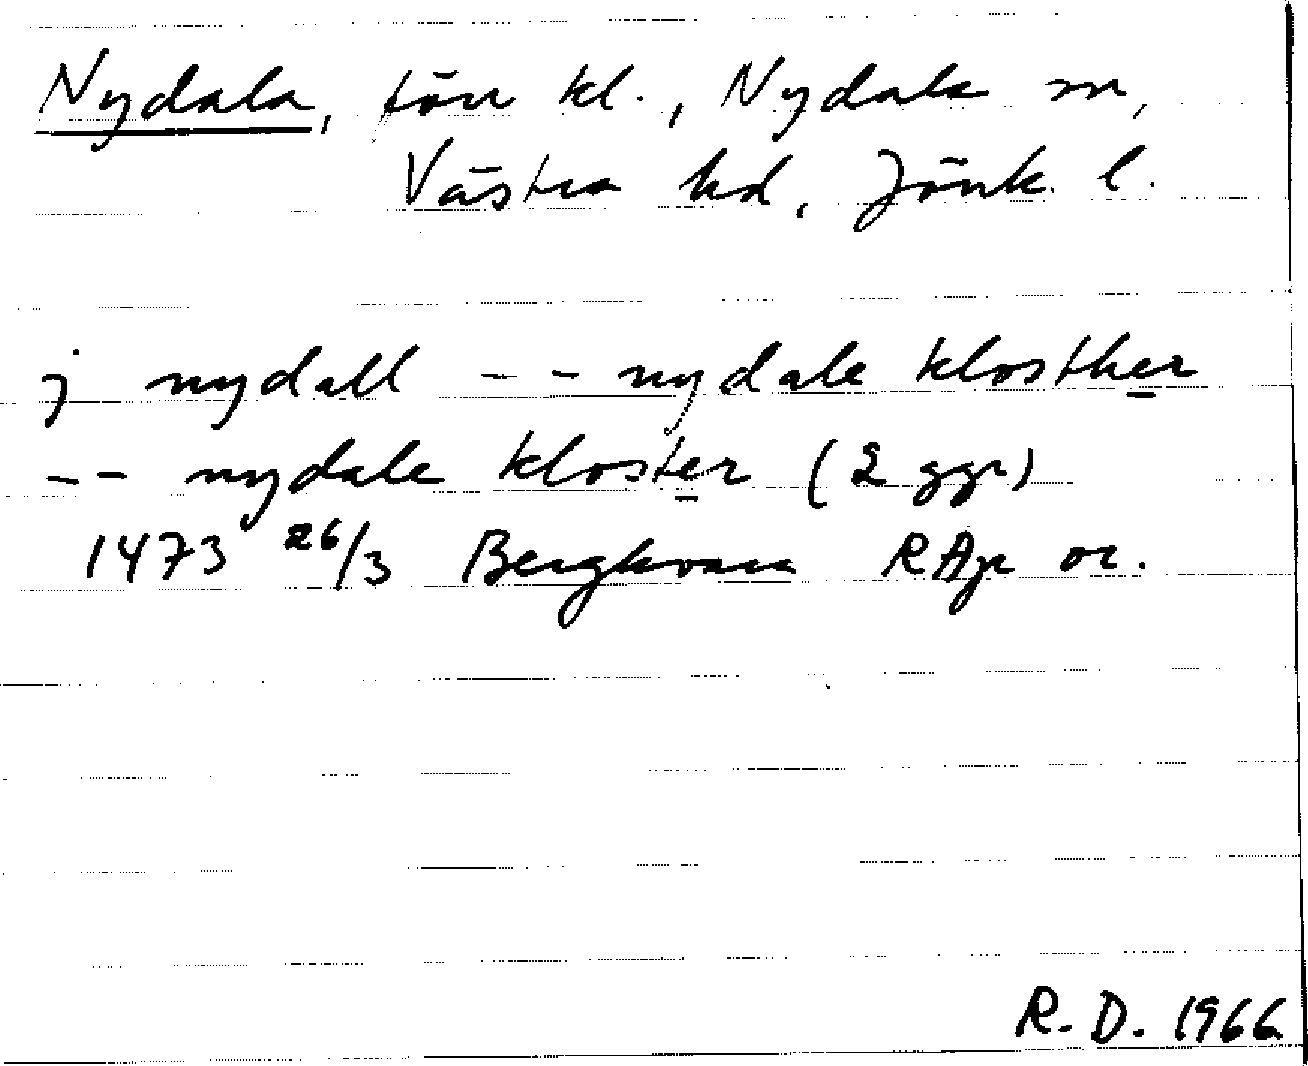 Nydala, förr kl., Nydala sn,
Västra hd, Jönk. l.
j nydall -- nydale klosther
-- nydale kloster (2 ggr)
1473 26/3 Bergkvara RAp or.
R. D. 1966